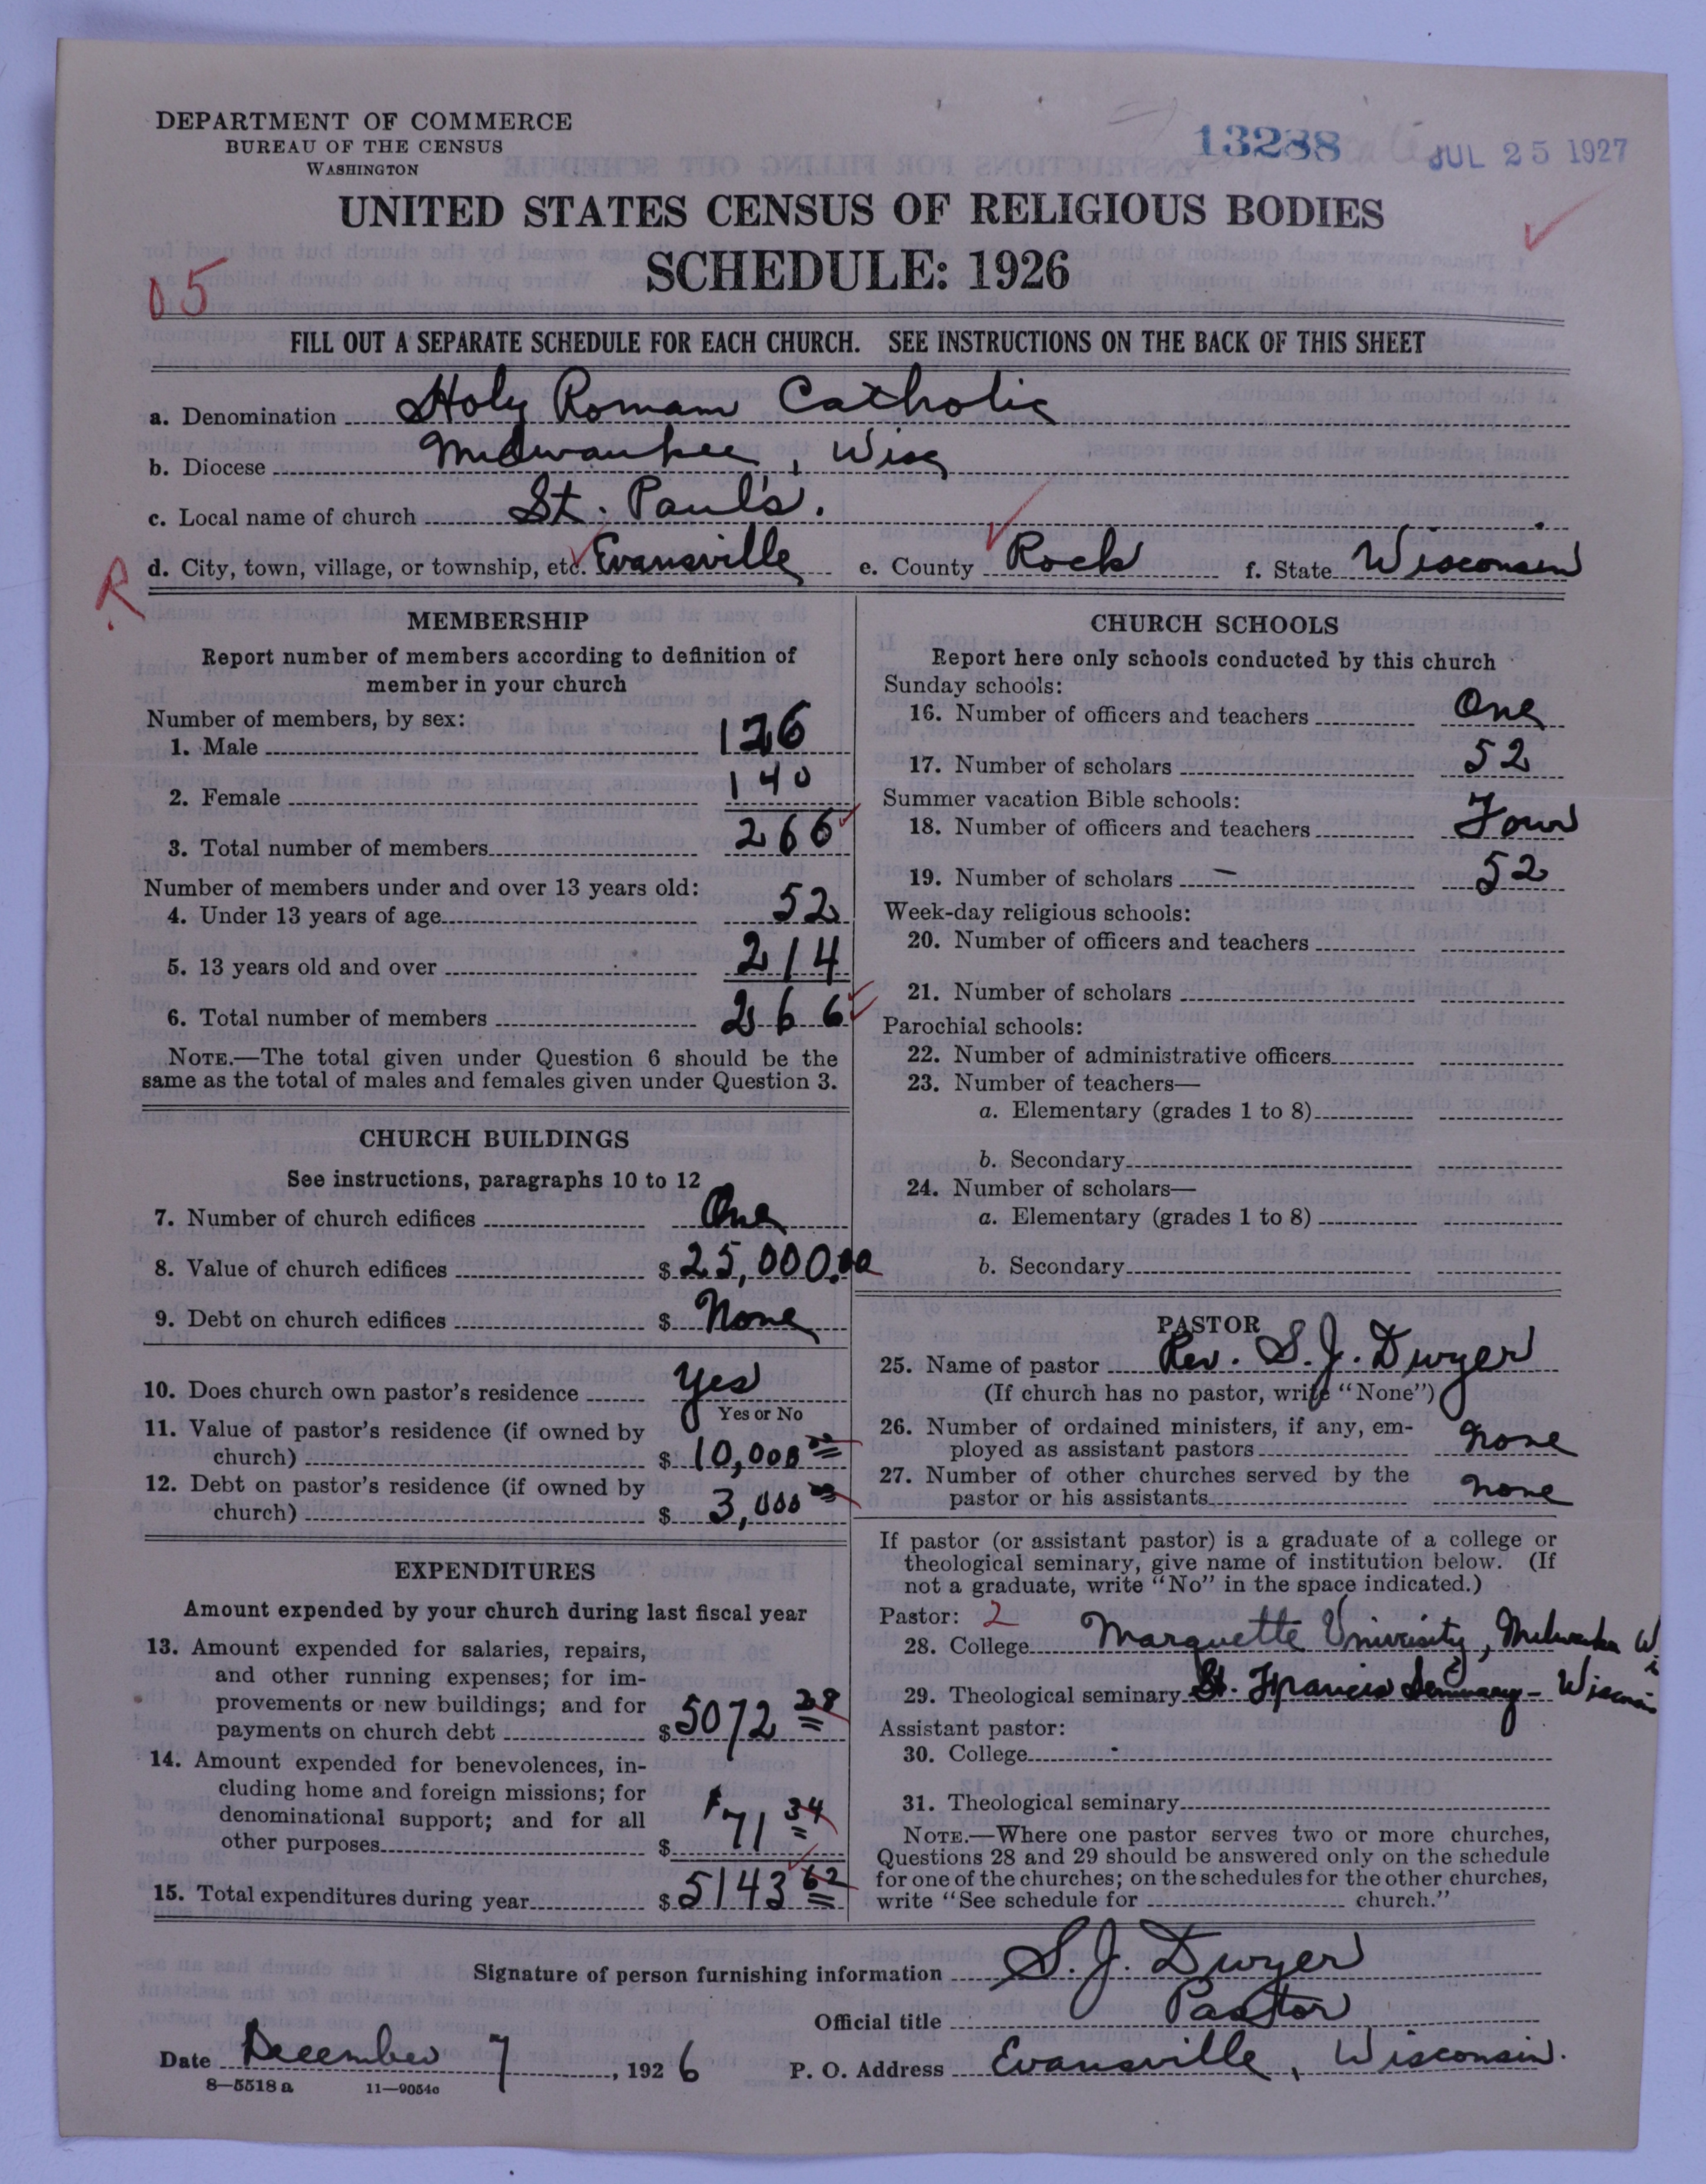 DEPARTMENT OF COMMERCE
BUREAU OF THE CENSUS
WASHINGTON
13288
JUL 25 1927
UNITED STATES CENSUS OF RELIGIOUS BODIES
SCHEDULE: 1926
05
FILL OUT A SEPARATE SCHEDULE FOR EACH CHURCH. SEE INSTRUCTIONS ON THE BACK OF THIS SHEET
a. Denomination Holy Roman Catholic
b. Diocese Milwaukee, Wisc
c. Local name of church St. Paul's.
R d. City, town, village, or township, etc. Evansville e. County Rock f. State Wisconsin
MEMBERSHIP
Report number of members according to definition of
member in your church
Number of members, by sex:
1. Male 126
2. Female 140
3. Total number of members 266
Number of members under and over 13 years old:
4. Under 13 years of age 52
5. 13 years old and over 214
6. Total number of members 266
NOTE.—The total given under Question 6 should be the
same as the total of males and females given under Question 3.
CHURCH BUILDINGS
See instructions, paragraphs 10 to 12
7. Number of church edifices One
8. Value of church edifices $ 25,000.00
9. Debt on church edifices $ None
10. Does church own pastor's residence Yes
Yes or No
11. Value of pastor's residence (if owned by
church) $ 10,000 00
12. Debt on pastor's residence (if owned by
church) $ 3,000 00
EXPENDITURES
Amount expended by your church during last fiscal year
13. Amount expended for salaries, repairs,
and other running expenses; for im-
provements or new buildings; and for
payments on church debt $ 5072 28
14. Amount expended for benevolences, in-
cluding home and foreign missions; for
denominational support; and for all
other purposes $ 71 34
15. Total expenditures during year $ 5143 62
CHURCH SCHOOLS
Report here only schools conducted by this church
Sunday schools:
16. Number of officers and teachers One
17. Number of scholars 52
Summer vacation Bible schools:
18. Number of officers and teachers Four
19. Number of scholars – 52
Week-day religious schools:
20. Number of officers and teachers
21. Number of scholars
Parochial schools:
22. Number of administrative officers
23. Number of teachers—
a. Elementary (grades 1 to 8)
b. Secondary
24. Number of scholars—
a. Elementary (grades 1 to 8)
b. Secondary
PASTOR
25. Name of pastor Rev. S. J. Dwyer
(If church has no pastor, write "None")
26. Number of ordained ministers, if any, em-
ployed as assistant pastors none
27. Number of other churches served by the
pastor or his assistants none
If pastor (or assistant pastor) is a graduate of a college or
theological seminary, give name of institution below. (If
not a graduate, write "No" in the space indicated.)
Pastor: 2
28. College Marquette University, Milwaukee Wi
29. Theological seminary St. Francis Seminary - Wisconsin
Assistant pastor:
30. College
31. Theological seminary
NOTE.—Where one pastor serves two or more churches,
Questions 28 and 29 should be answered only on the schedule
for one of the churches; on the schedules for the other churches,
write "See schedule for church."
Signature of person furnishing information S. J. Dwyer
Official title Pastor
Date December 7, 1926 P. O. Address Evansville, Wisconsin.
8—5518 a 11—9054c